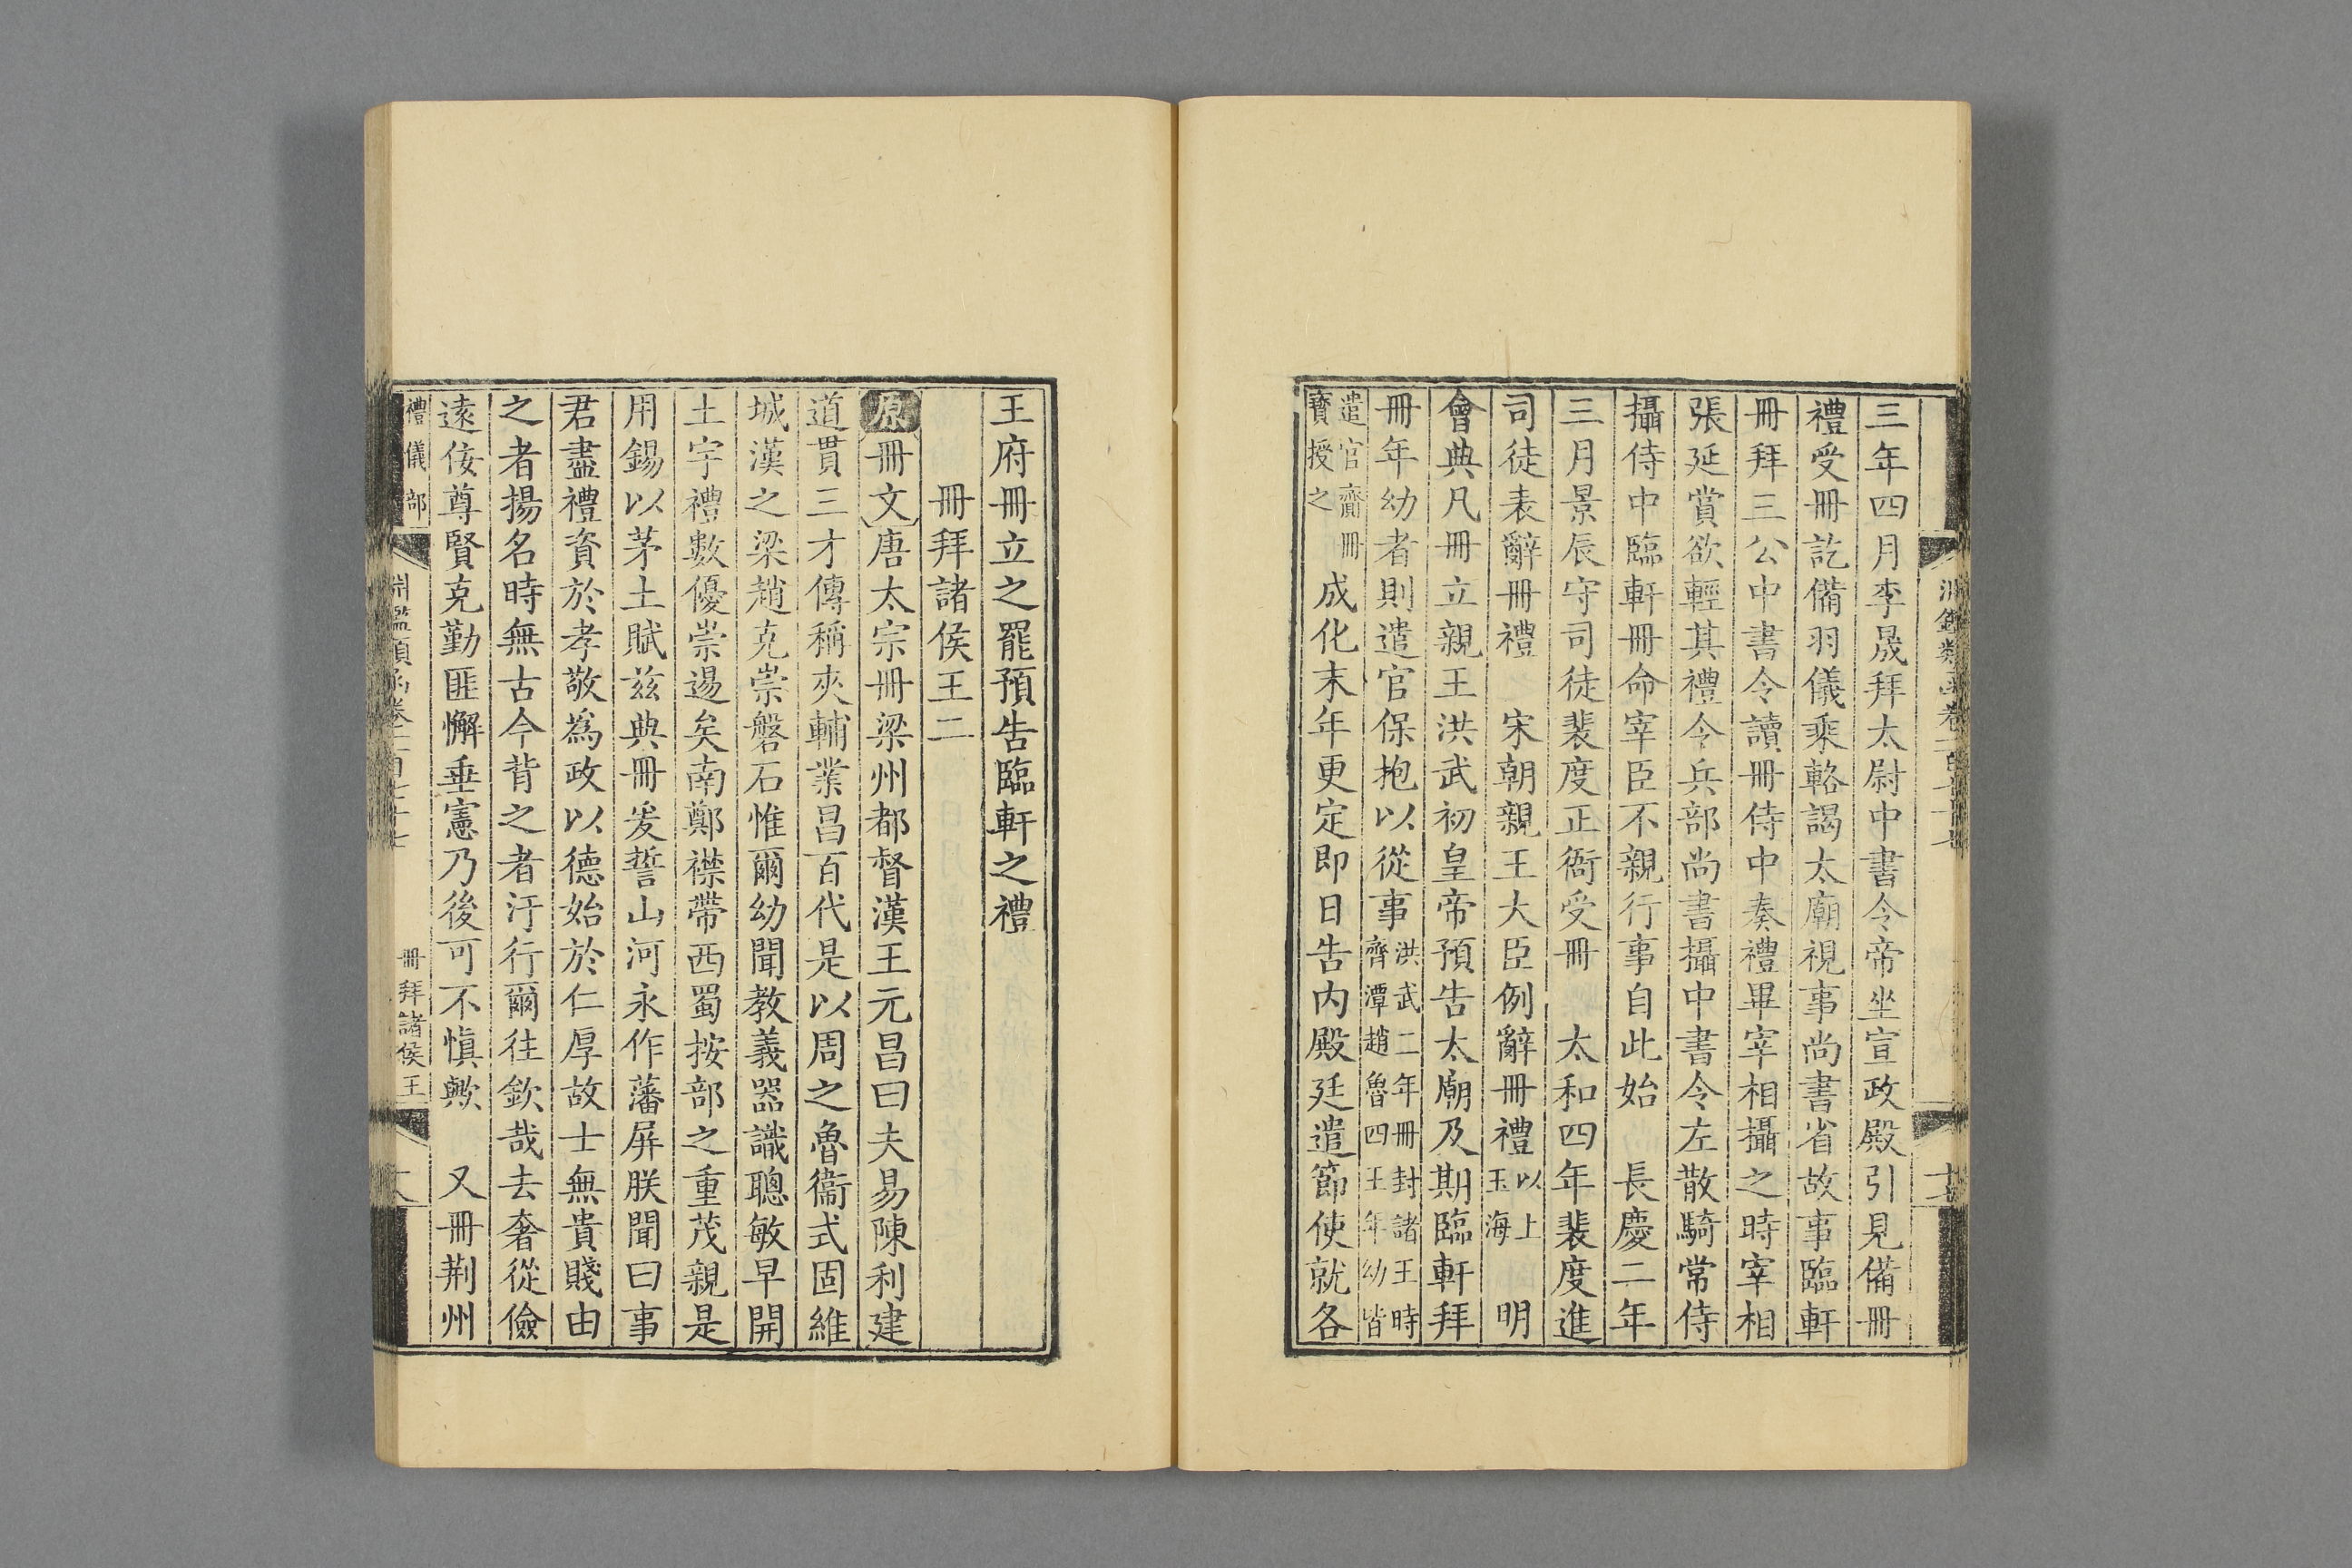 三年四月李晟拜太尉中書令帝坐宣政殿引見備冊
禮受冊訖備羽儀乘輅謁太廟視事尚書省故事臨軒
冊拜三公中書令讀冊侍中奏禮畢宰相攝之時宰相
張延賞欲輕其禮令兵部尚書攝中書令左散騎常侍
攝侍中臨軒冊命宰臣不親行事自此始　長慶二年
三月景辰守司徒裴度正衙受冊　太和四年裴度進
司徒表辭冊禮　宋朝親王大臣例辭冊禮以上玉海　明
會典凡冊立親王洪武初皇帝預告太廟及期臨軒拜
冊年幼者則遣官保抱以從事洪武二年冊封諸王時齊潭趙魯四王年幼皆
遣官齎冊寶授之　成化末年更定即日告內殿廷遣節使就各
王府冊立之罷預告臨軒之禮
冊拜諸侯王二
原冊文唐太宗冊梁州都督漢王元昌曰夫易陳利建
道貫三才傳稱夾輔業昌百代是以周之魯衞式固維
城漢之梁趙克崇磐石惟爾幼聞教義器識聰敏早開
土宇禮數優崇逷矣南鄭襟帶西蜀按部之重茂親是
用錫以茅土賦茲典冊爰誓山河永作藩屏朕聞曰事
君盡禮資於孝敬為政以德始於仁厚故士無貴賤由
之者揚名時無古今背之者汙行爾往欽哉去奢從儉
遠佞尊賢克勤匪懈垂憲乃後可不愼歟　又冊荆州
禮儀部
冊拜諸侯王